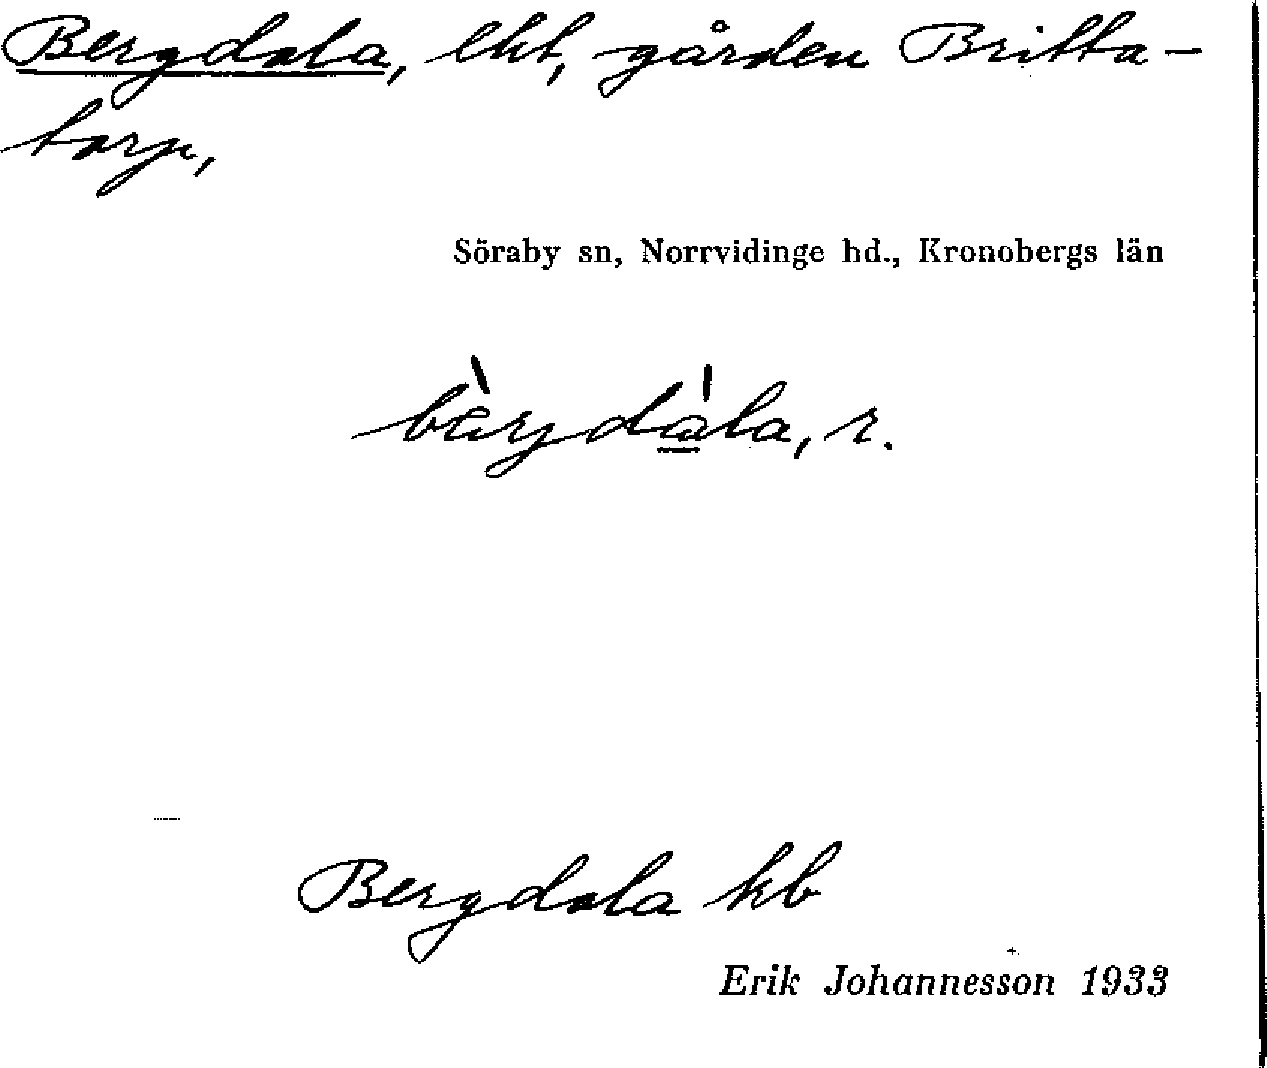 Bergdala, lht, gården Britta-
torp,
Söraby sn, Norrvidinge hd., Kronobergs län
bàrjdàla, r.
Bergdala kb
Erik Johannesson 1933